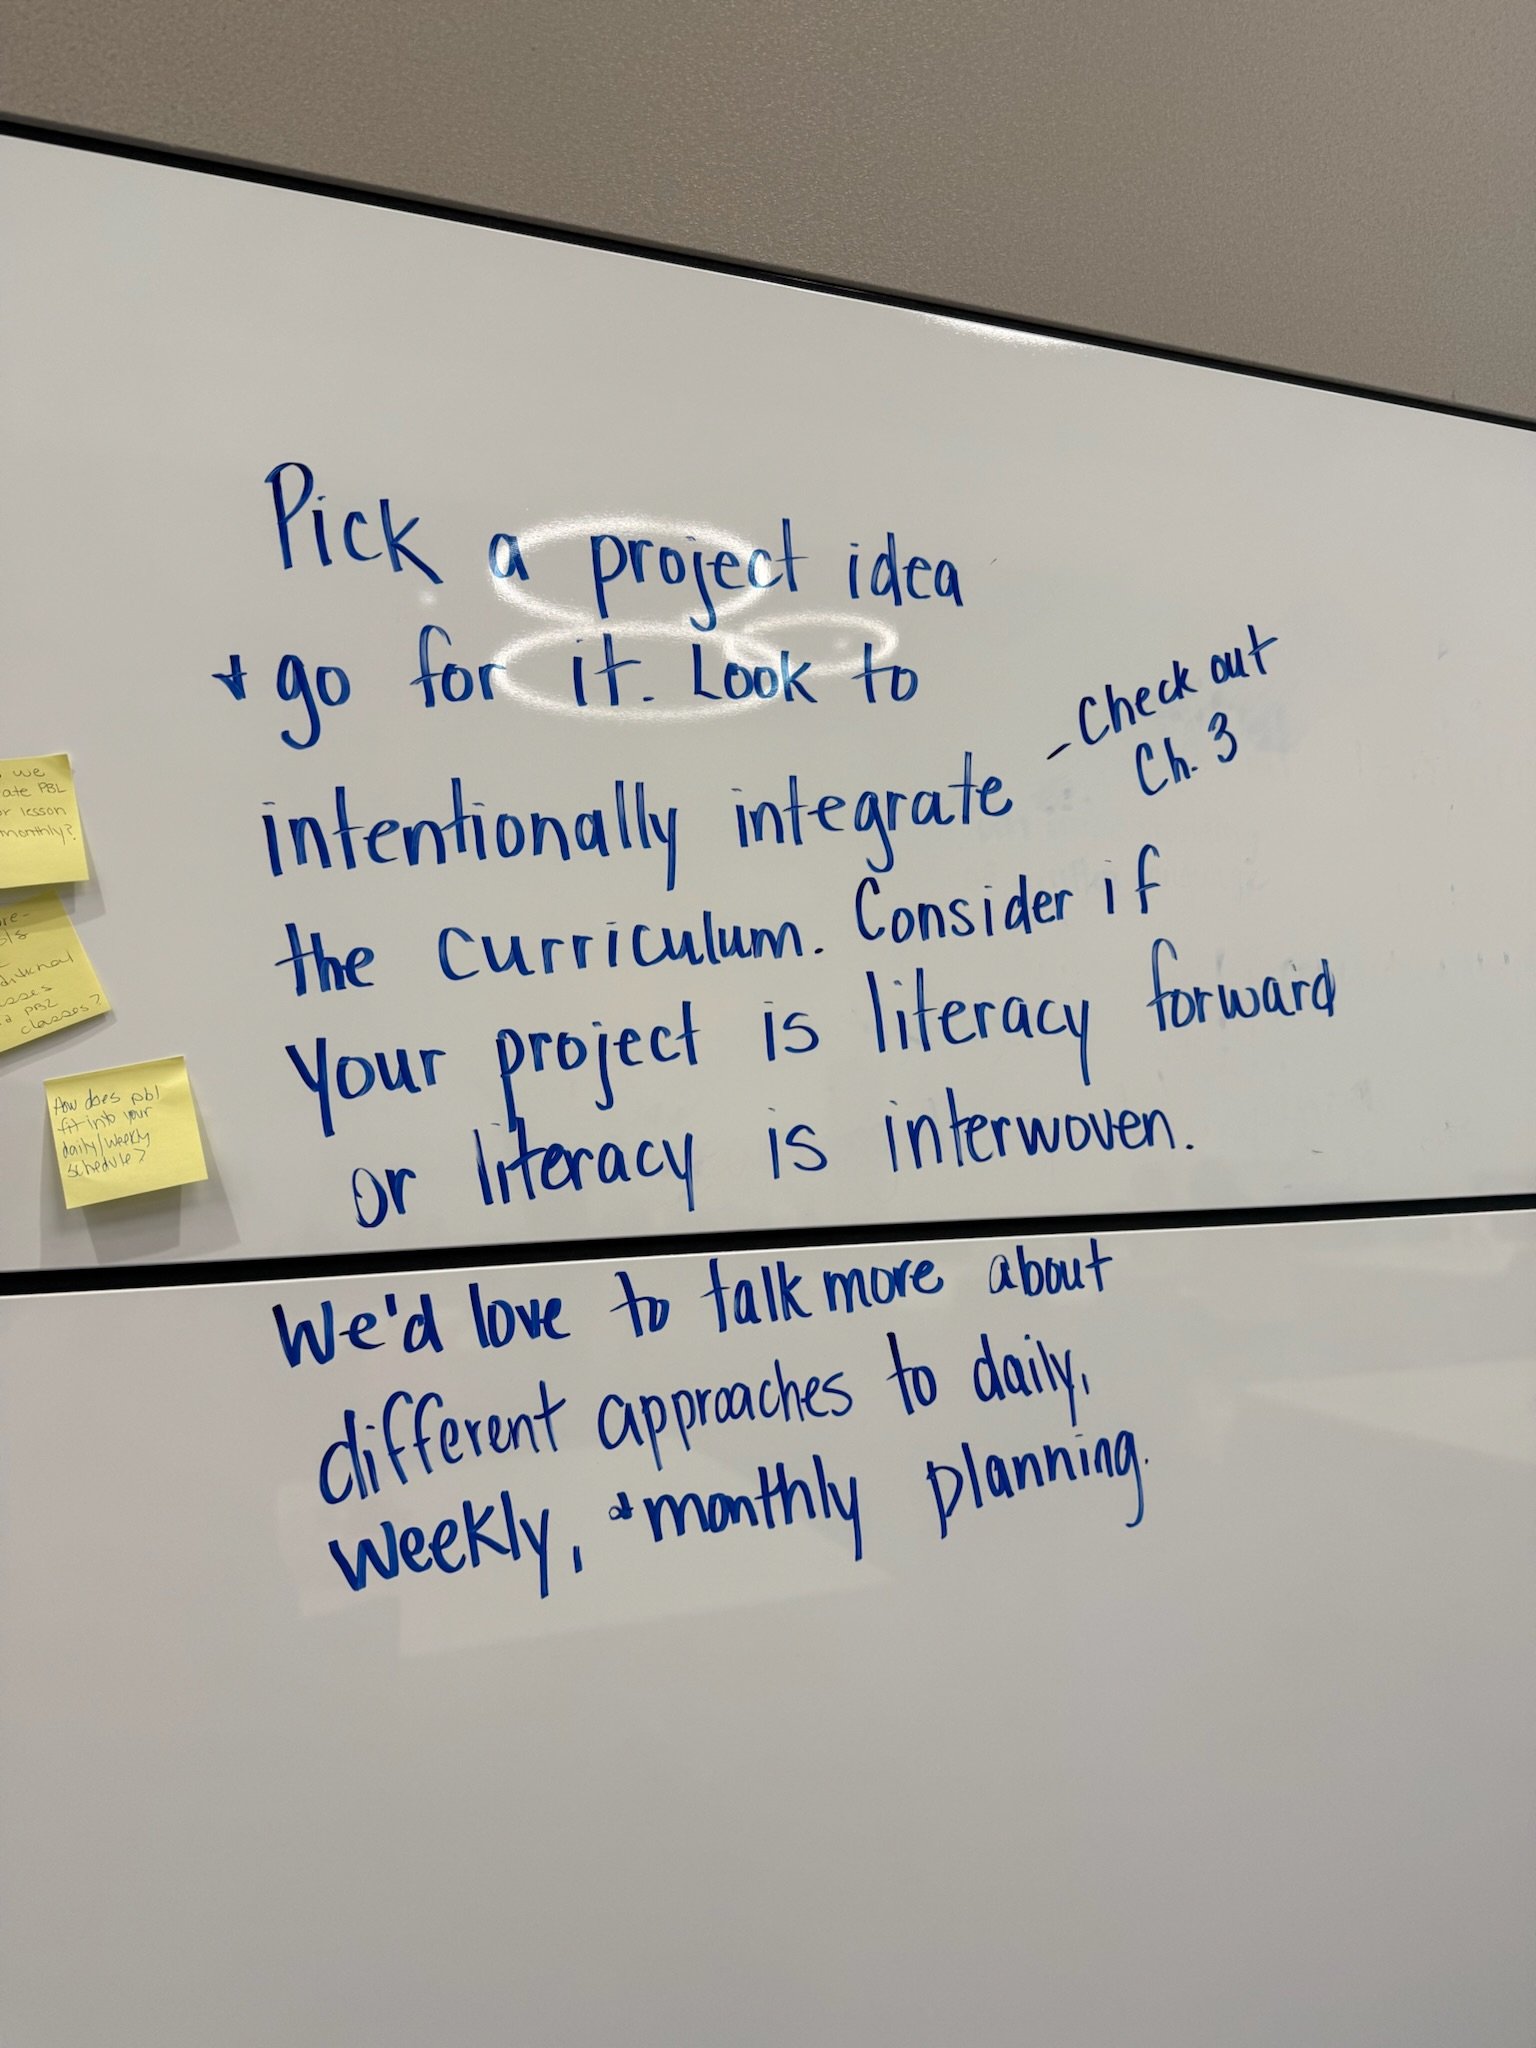 Pick a project idea
+ go for it. Look to
intentionally integrate - Check out
Ch. 3
the curriculum. Consider if
your project is literacy forward
or literacy is interwoven.
We'd love to talk more about
different approaches to daily,
weekly, + monthly planning.
we
ate PBL
or lesson
monthly?
re-
ditional
asses
PBL
classes?
How does pbl
fit into your
daily/weekly
schedule?